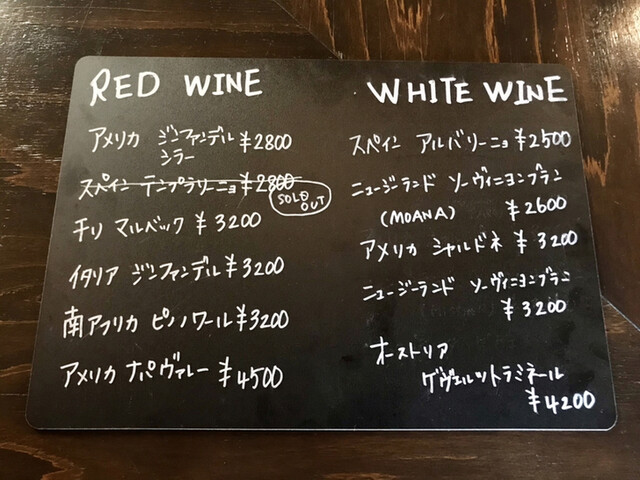 RED WINE
アメリカ ジンファンデル ¥2800
シラー
スペイン テンプラリーニョ ¥2800
SOLD OUT
チリ マルベック ¥3200
イタリア ジンファンデル ¥3200
南アフリカ ピノノワール ¥3200
アメリカ ナパヴァレー ¥4500
WHITE WINE
スペイン アルバリーニョ ¥2500
ニュージーランド ソーヴィニヨンブラン
(MOANA) ¥2600
アメリカ シャルドネ ¥3200
ニュージーランド ソーヴィニヨンブラン
¥3200
オーストリア
ゲヴェルツトラミネール
¥4200